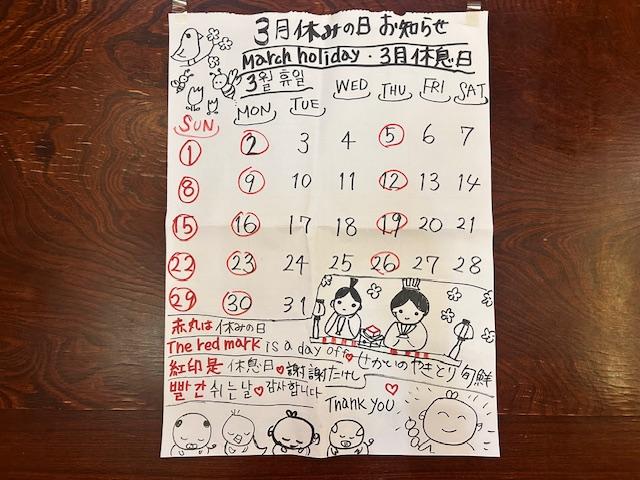 3月休みの日 お知らせ
March holiday・3月休息日
3월 휴일
SUN MON TUE WED THU FRI SAT
1 2 3 4 5 6 7
8 9 10 11 12 13 14
15 16 17 18 19 20 21
22 23 24 25 26 27 28
29 30 31
赤丸は休みの日
The red mark is a day off せかいのやきとり 旬鮮
紅印是休息日 謝謝たけし
빨간 쉬는날 감사합니다
Thank you